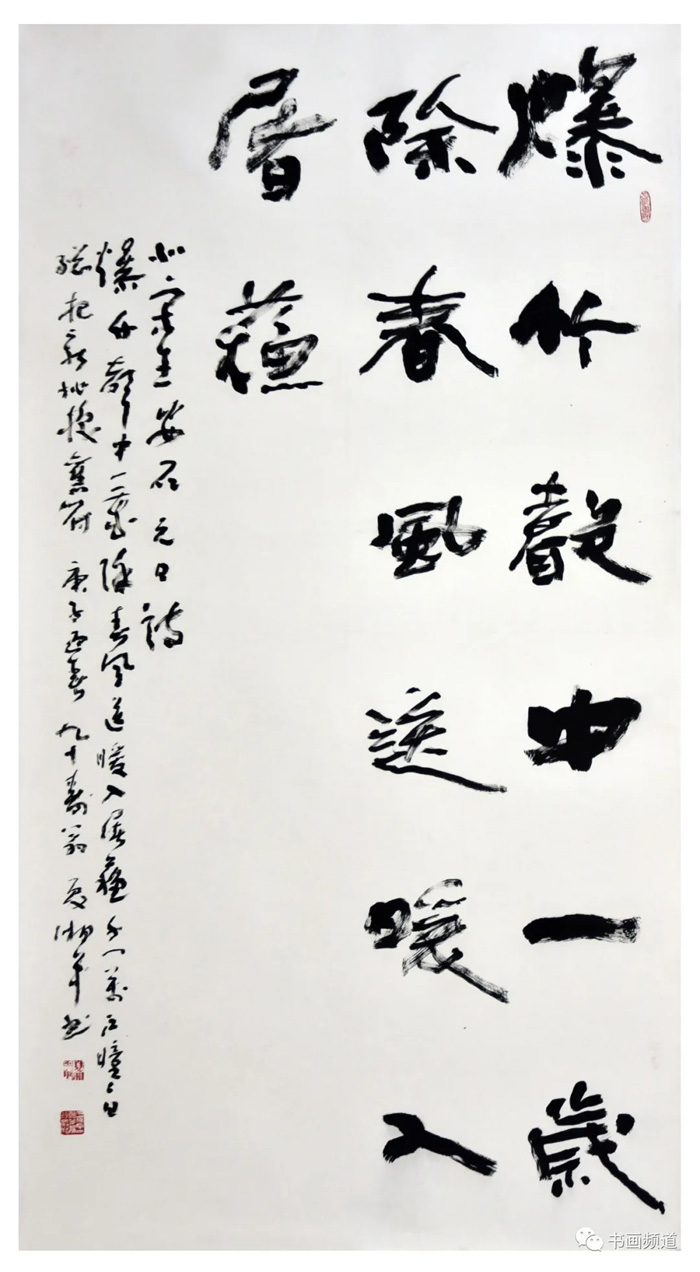 爆竹聲中一歲
除春風送暖入
屠蘇
北宋王安石元日詩
爆竹聲中一歲除春風送暖入屠蘇千门萬户曈々日
總把新桃換舊符 庚子迎春 九十壽翁 夏湘平書
书画频道